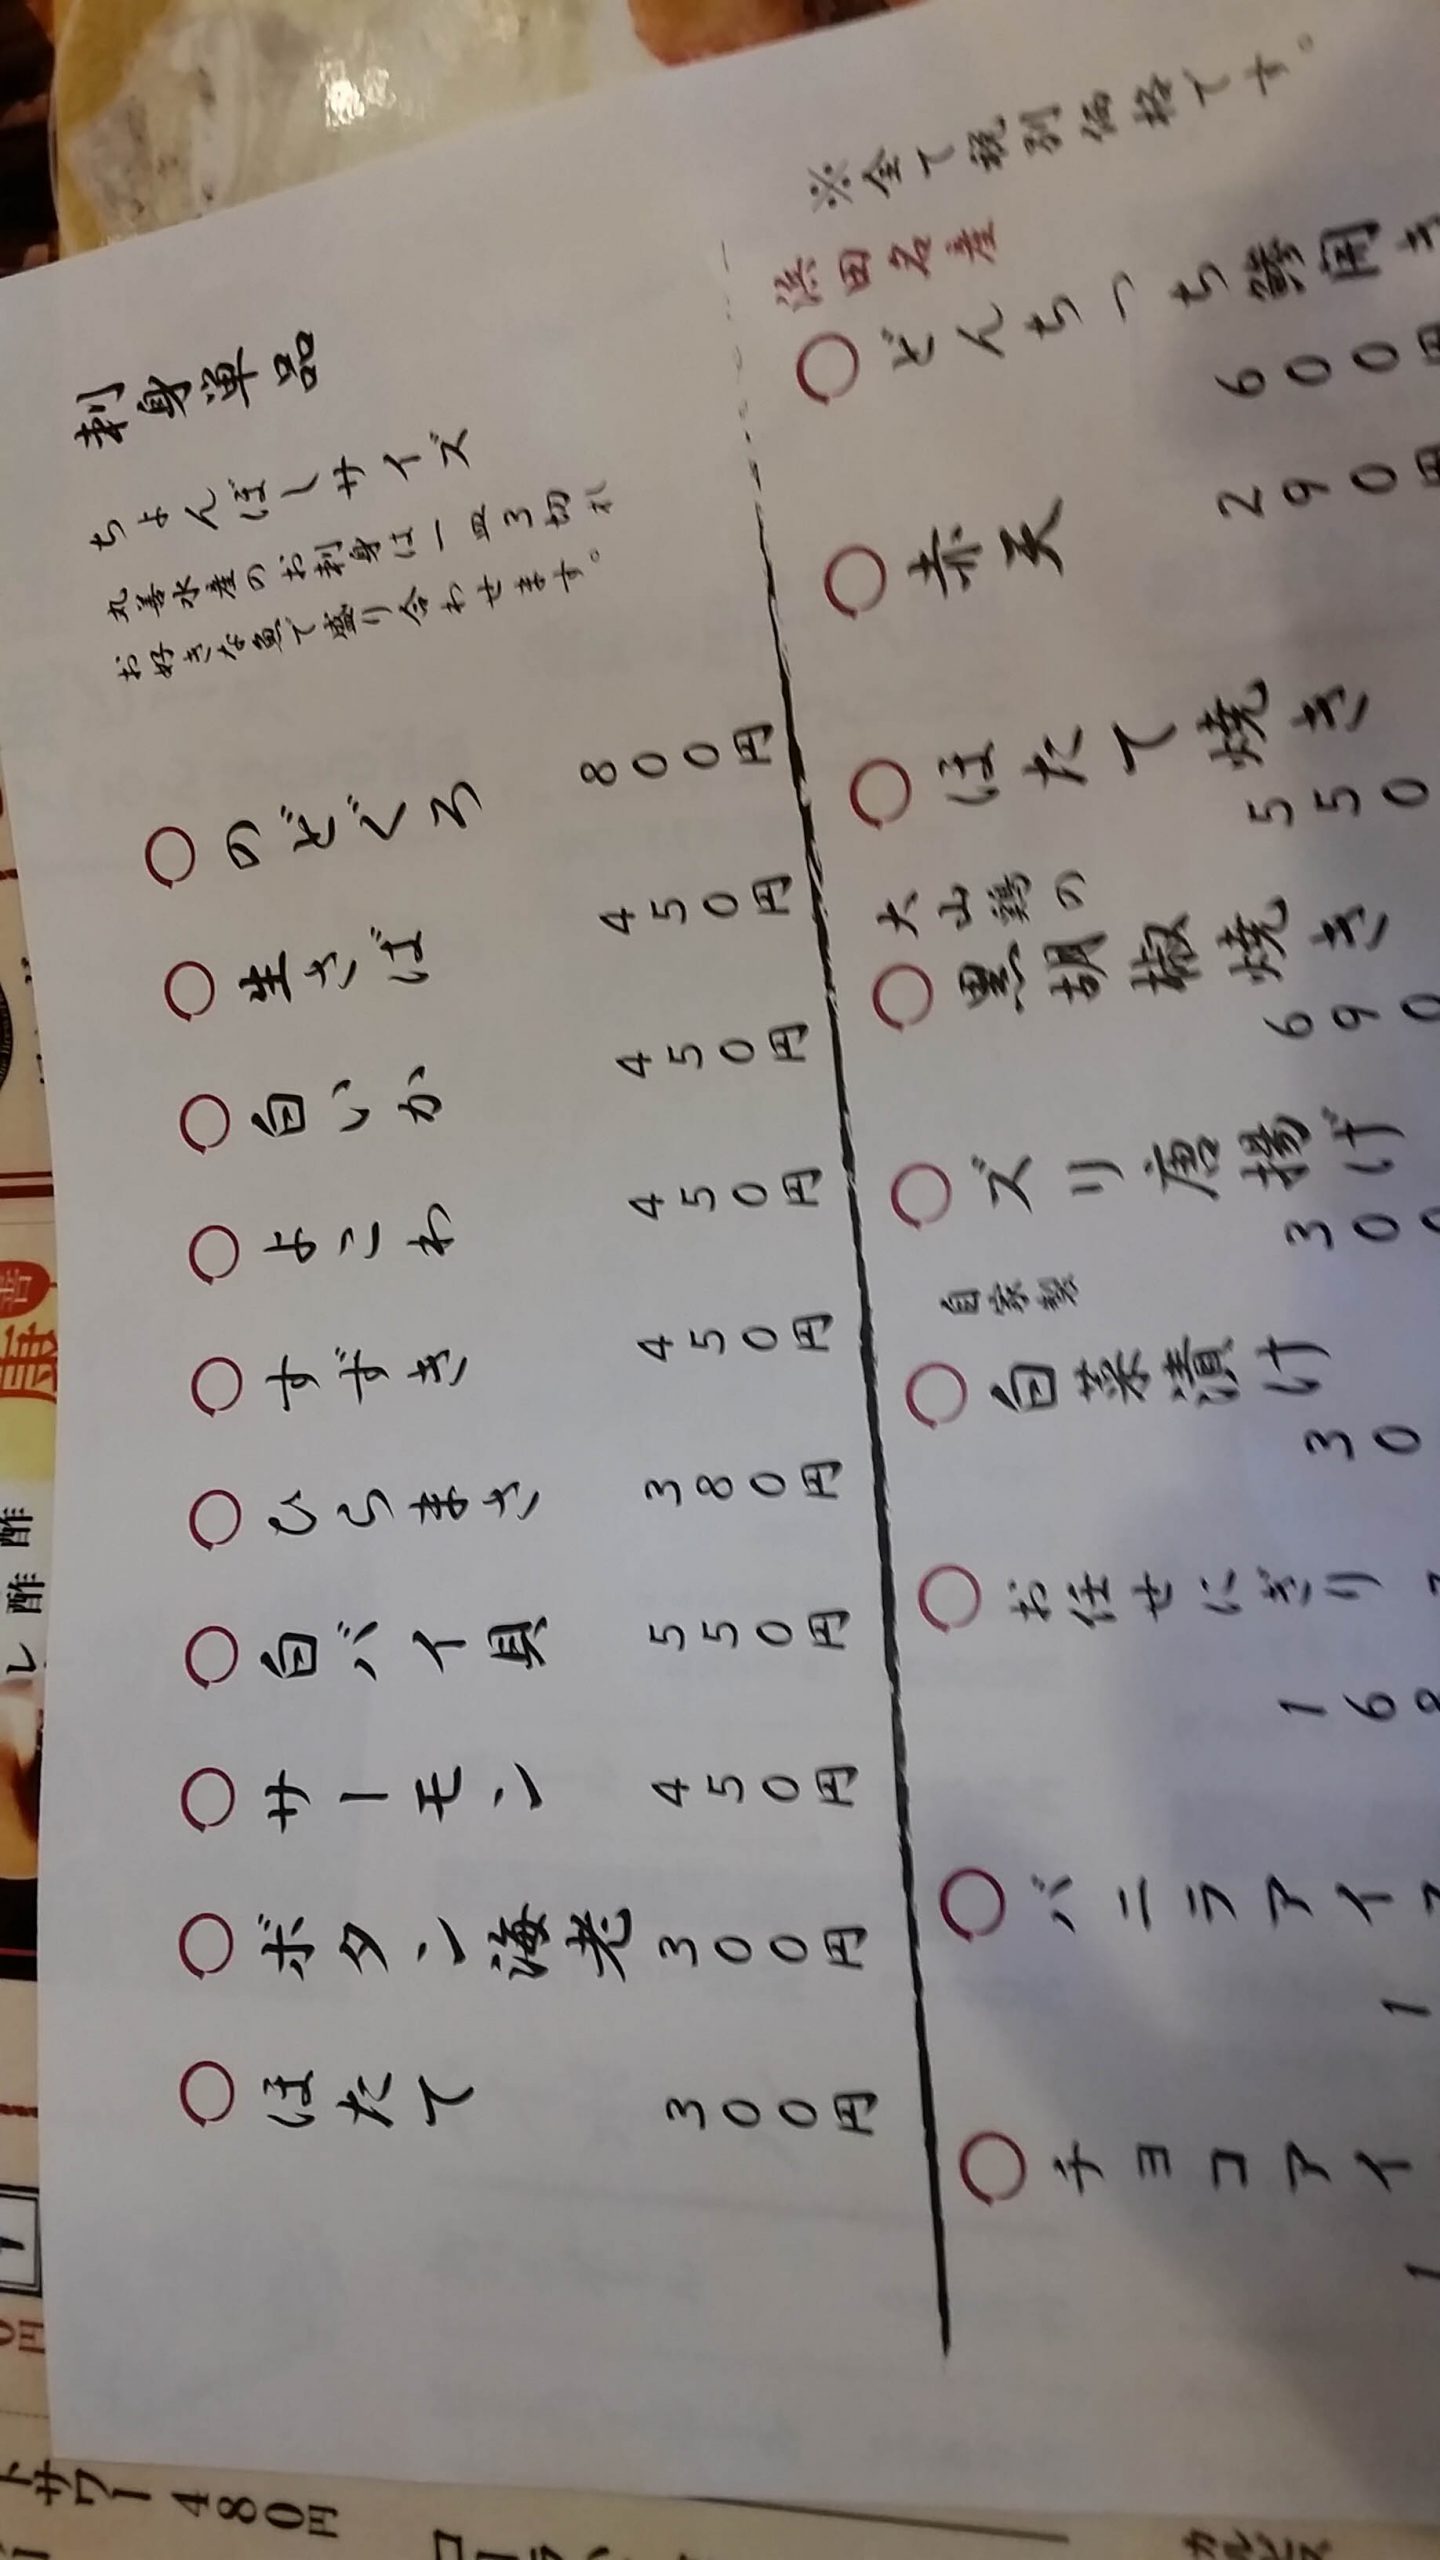 刺身単品
ちょんぼしサイズ
丸善水産のお刺身は一皿3切れ
お好きな魚で盛り合わせます。
○のどぐろ 800円
○生さば 450円
○白いか 450円
○よこわ 450円
○すずき 450円
○ひらまさ 380円
○白バイ貝 550円
○サーモン 450円
○ボタン海老 300円
○ほたて 300円
※全て税別価格です。
浜田名産
○どんちっち鯵開き
600円
○赤天 290円
○ほたて焼き
550
大山鶏の
○黒胡椒焼き
690
○ズリ唐揚げ
300
自家製
○白菜漬け
30
○お任せにぎり
168
○バニラアイス
1
○チョコアイ
1
レ酢酢
トサワー480円